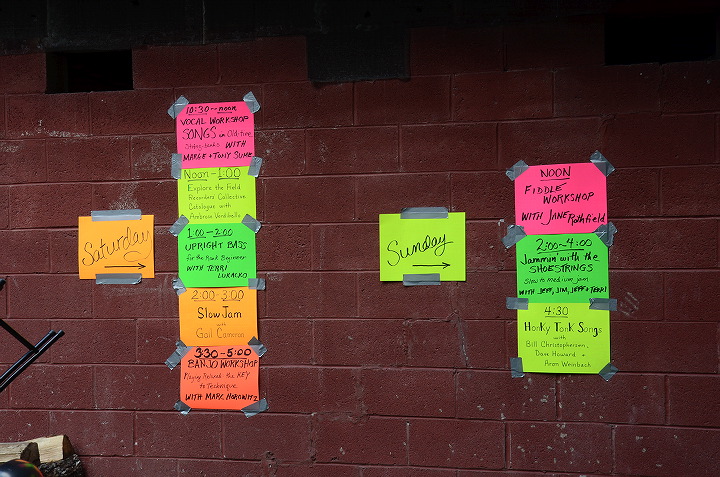 Saturday
10:30 - noon
VOCAL WORKSHOP
SONGS in Old-time
String bands WITH
MARGE + TONY SUME
Noon - 1:00
Explore the Field
Recorders Collective
Catalogue with
Ambrose Verdibello
1:00 - 2:00
UPRIGHT BASS
for the Rank Beginner
WITH TERRI
LUKACKO
2:00 - 3:00
Slow Jam
with
Gail Cameron
3:30 - 5:00
BANJO WORKSHOP
Playing Relaxed the KEY
to Technique
WITH MARC HOROWITZ
Sunday
NOON
FIDDLE
WORKSHOP
WITH JANE Rothfield
2:00 ~ 4:00
Jammin' with the
SHOESTRINGS
Slow to medium jam
WITH JEFF, JIM, JEFF + TERRI
4:30
Honky Tonk Songs
with
Bill Christophersen,
Dave Howard +
Aron Weinbach